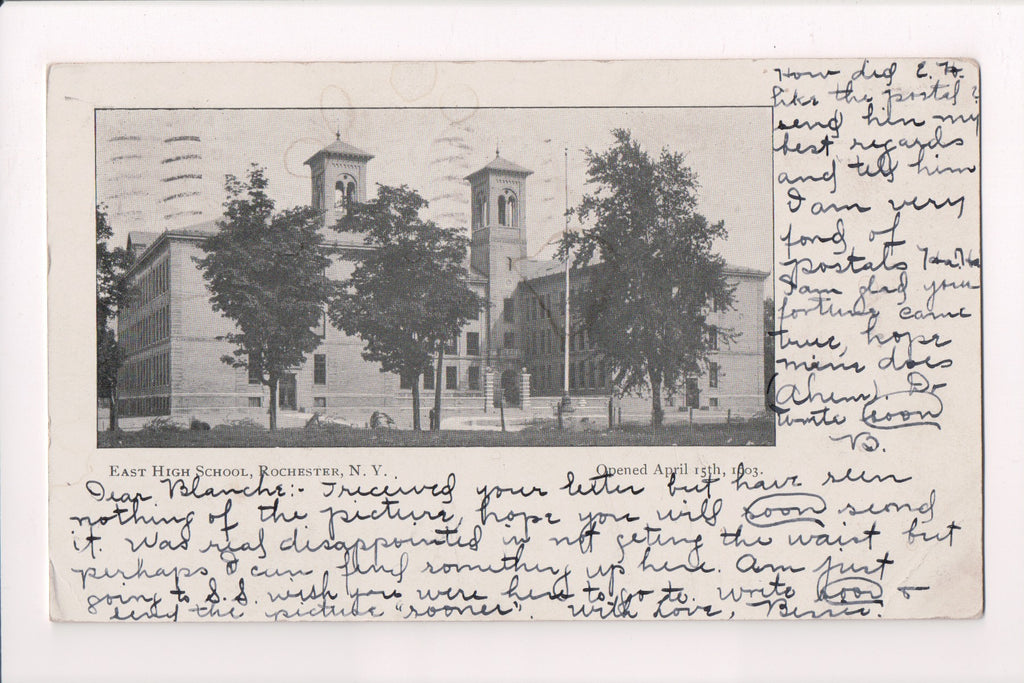 East High School, Rochester, N. Y.
Opened April 15th, 1903.
Dear Blanche:- I received your letter but have seen
nothing of the picture, hope you will soon send
it. Was real disappointed in not geting the waist but
perhaps I can find something up here. Am just
going to S.S. wish you were here to go to. Write soon &
send the picture "sooner". With Love, Bessie.
How did E. H.
like the postal?
send him my
best regards
and tell him
I am very
fond of
postals Ha.Ha
I am glad your
fortune came
true, hope
mine does
(Ahem). Do
write soon
B.